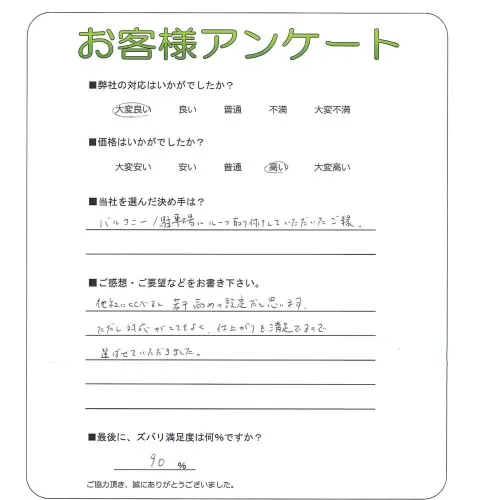 お客様アンケート
■弊社の対応はいかがでしたか？
大変良い 良い 普通 不満 大変不満
■価格はいかがでしたか？
大変安い 安い 普通 高い 大変高い
■当社を選んだ決め手は？
バルコニー/駐車場に ルーフ取り付けしていただいたご縁。
■ご感想・ご要望などをお書き下さい。
他社に比べると 若干高めの設定だと思います。
ただし 対応がとてもよく、仕上がりも満足ですので
選ばせていただきました。
■最後に、ズバリ満足度は何%ですか？
90 %
ご協力頂き、誠にありがとうございました。